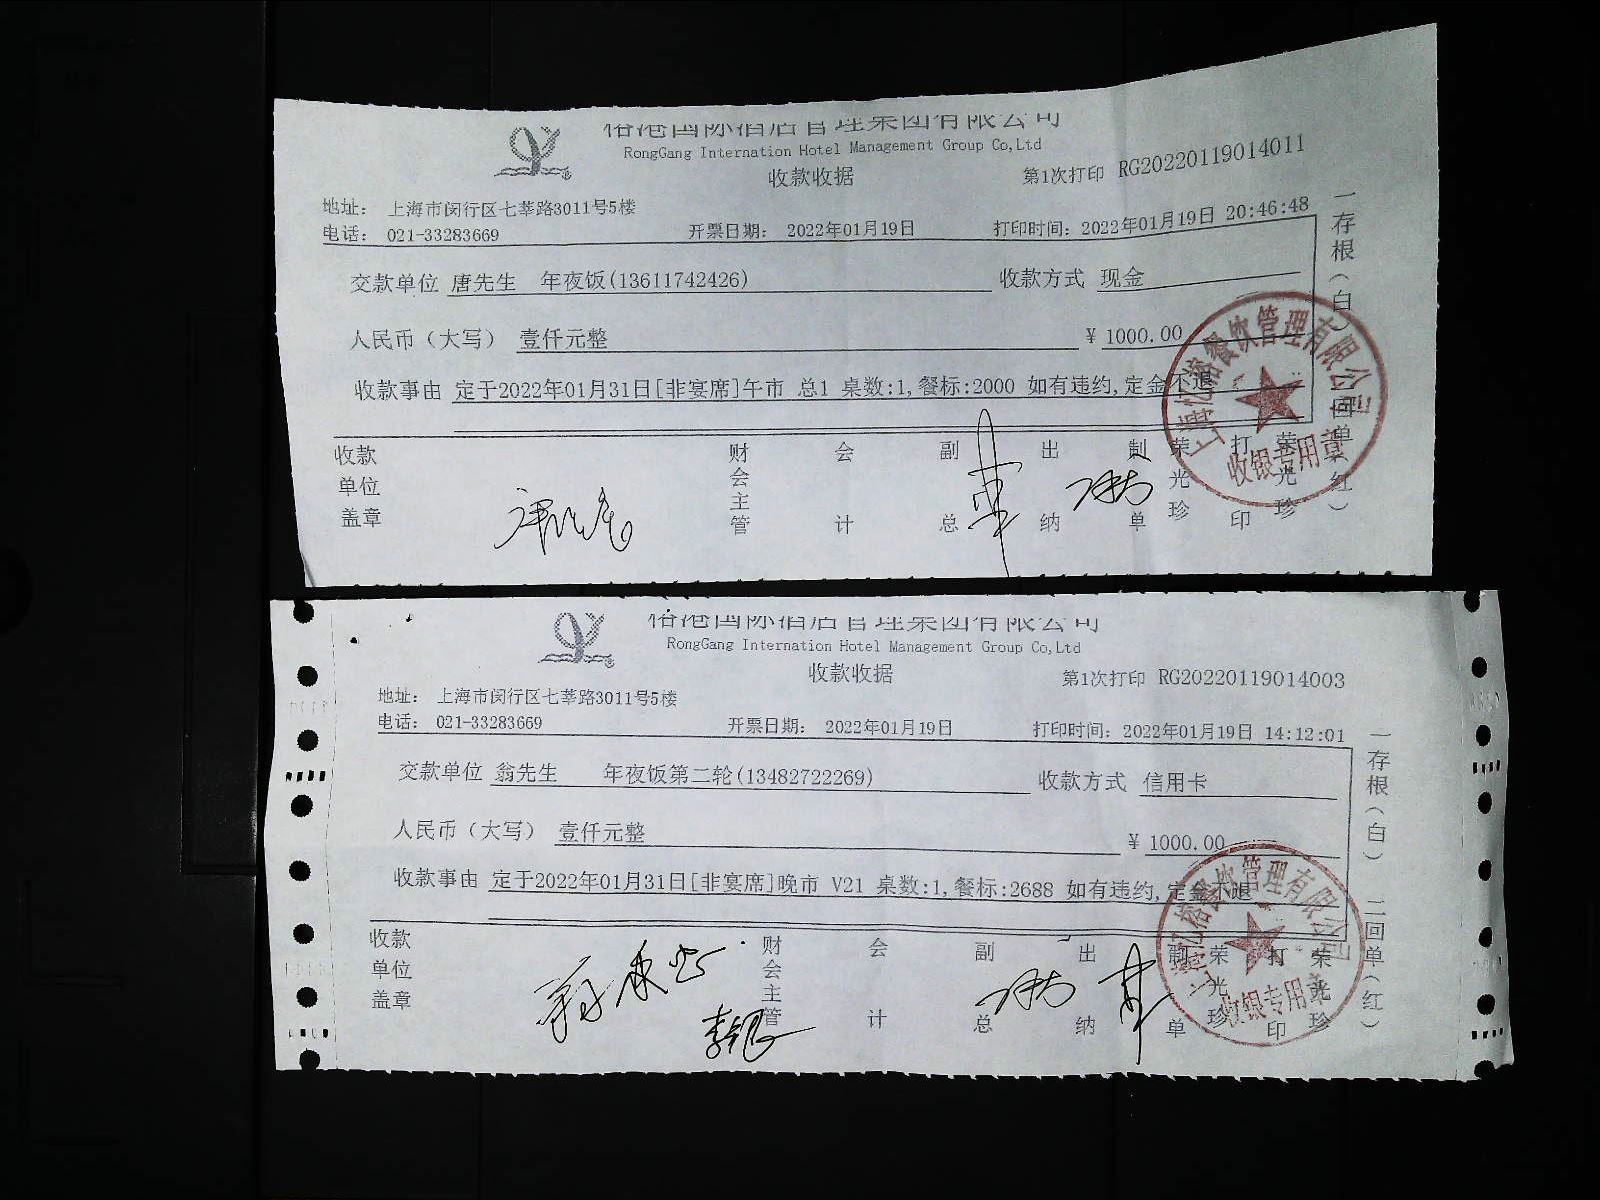 榕港国际酒店管理集团有限公司
RongGang Internation Hotel Management Group Co,Ltd
收款收据
第1次打印 RG20220119014011
地址： 上海市闵行区七莘路3011号5楼
电话： 021-33283669 开票日期： 2022年01月19日 打印时间：2022年01月19日 20:46:48
交款单位 唐先生 年夜饭(13611742426) 收款方式 现金
人民币（大写） 壹仟元整 ¥ 1000.00
收款事由 定于2022年01月31日[非宴席]午市 总1 桌数:1,餐标:2000 如有违约,定金不退
收款单位盖章 财会主管 会计 副总 出纳 制单 荣光珍 打印 荣光珍
一存根（白） 二回单（红）
餐饮管理有限公司
收银专用章
榕港国际酒店管理集团有限公司
RongGang Internation Hotel Management Group Co,Ltd
收款收据
第1次打印 RG20220119014003
地址： 上海市闵行区七莘路3011号5楼
电话： 021-33283669 开票日期： 2022年01月19日 打印时间：2022年01月19日 14:12:01
交款单位 翁先生 年夜饭第二轮(13482722269) 收款方式 信用卡
人民币（大写） 壹仟元整 ¥ 1000.00
收款事由 定于2022年01月31日[非宴席]晚市 V21 桌数:1,餐标:2688 如有违约,定金不退
收款单位盖章 财会主管 会计 副总 出纳 制单 荣光珍 打印 荣光珍
一存根（白） 二回单（红）
餐饮管理有限公司
收银专用章